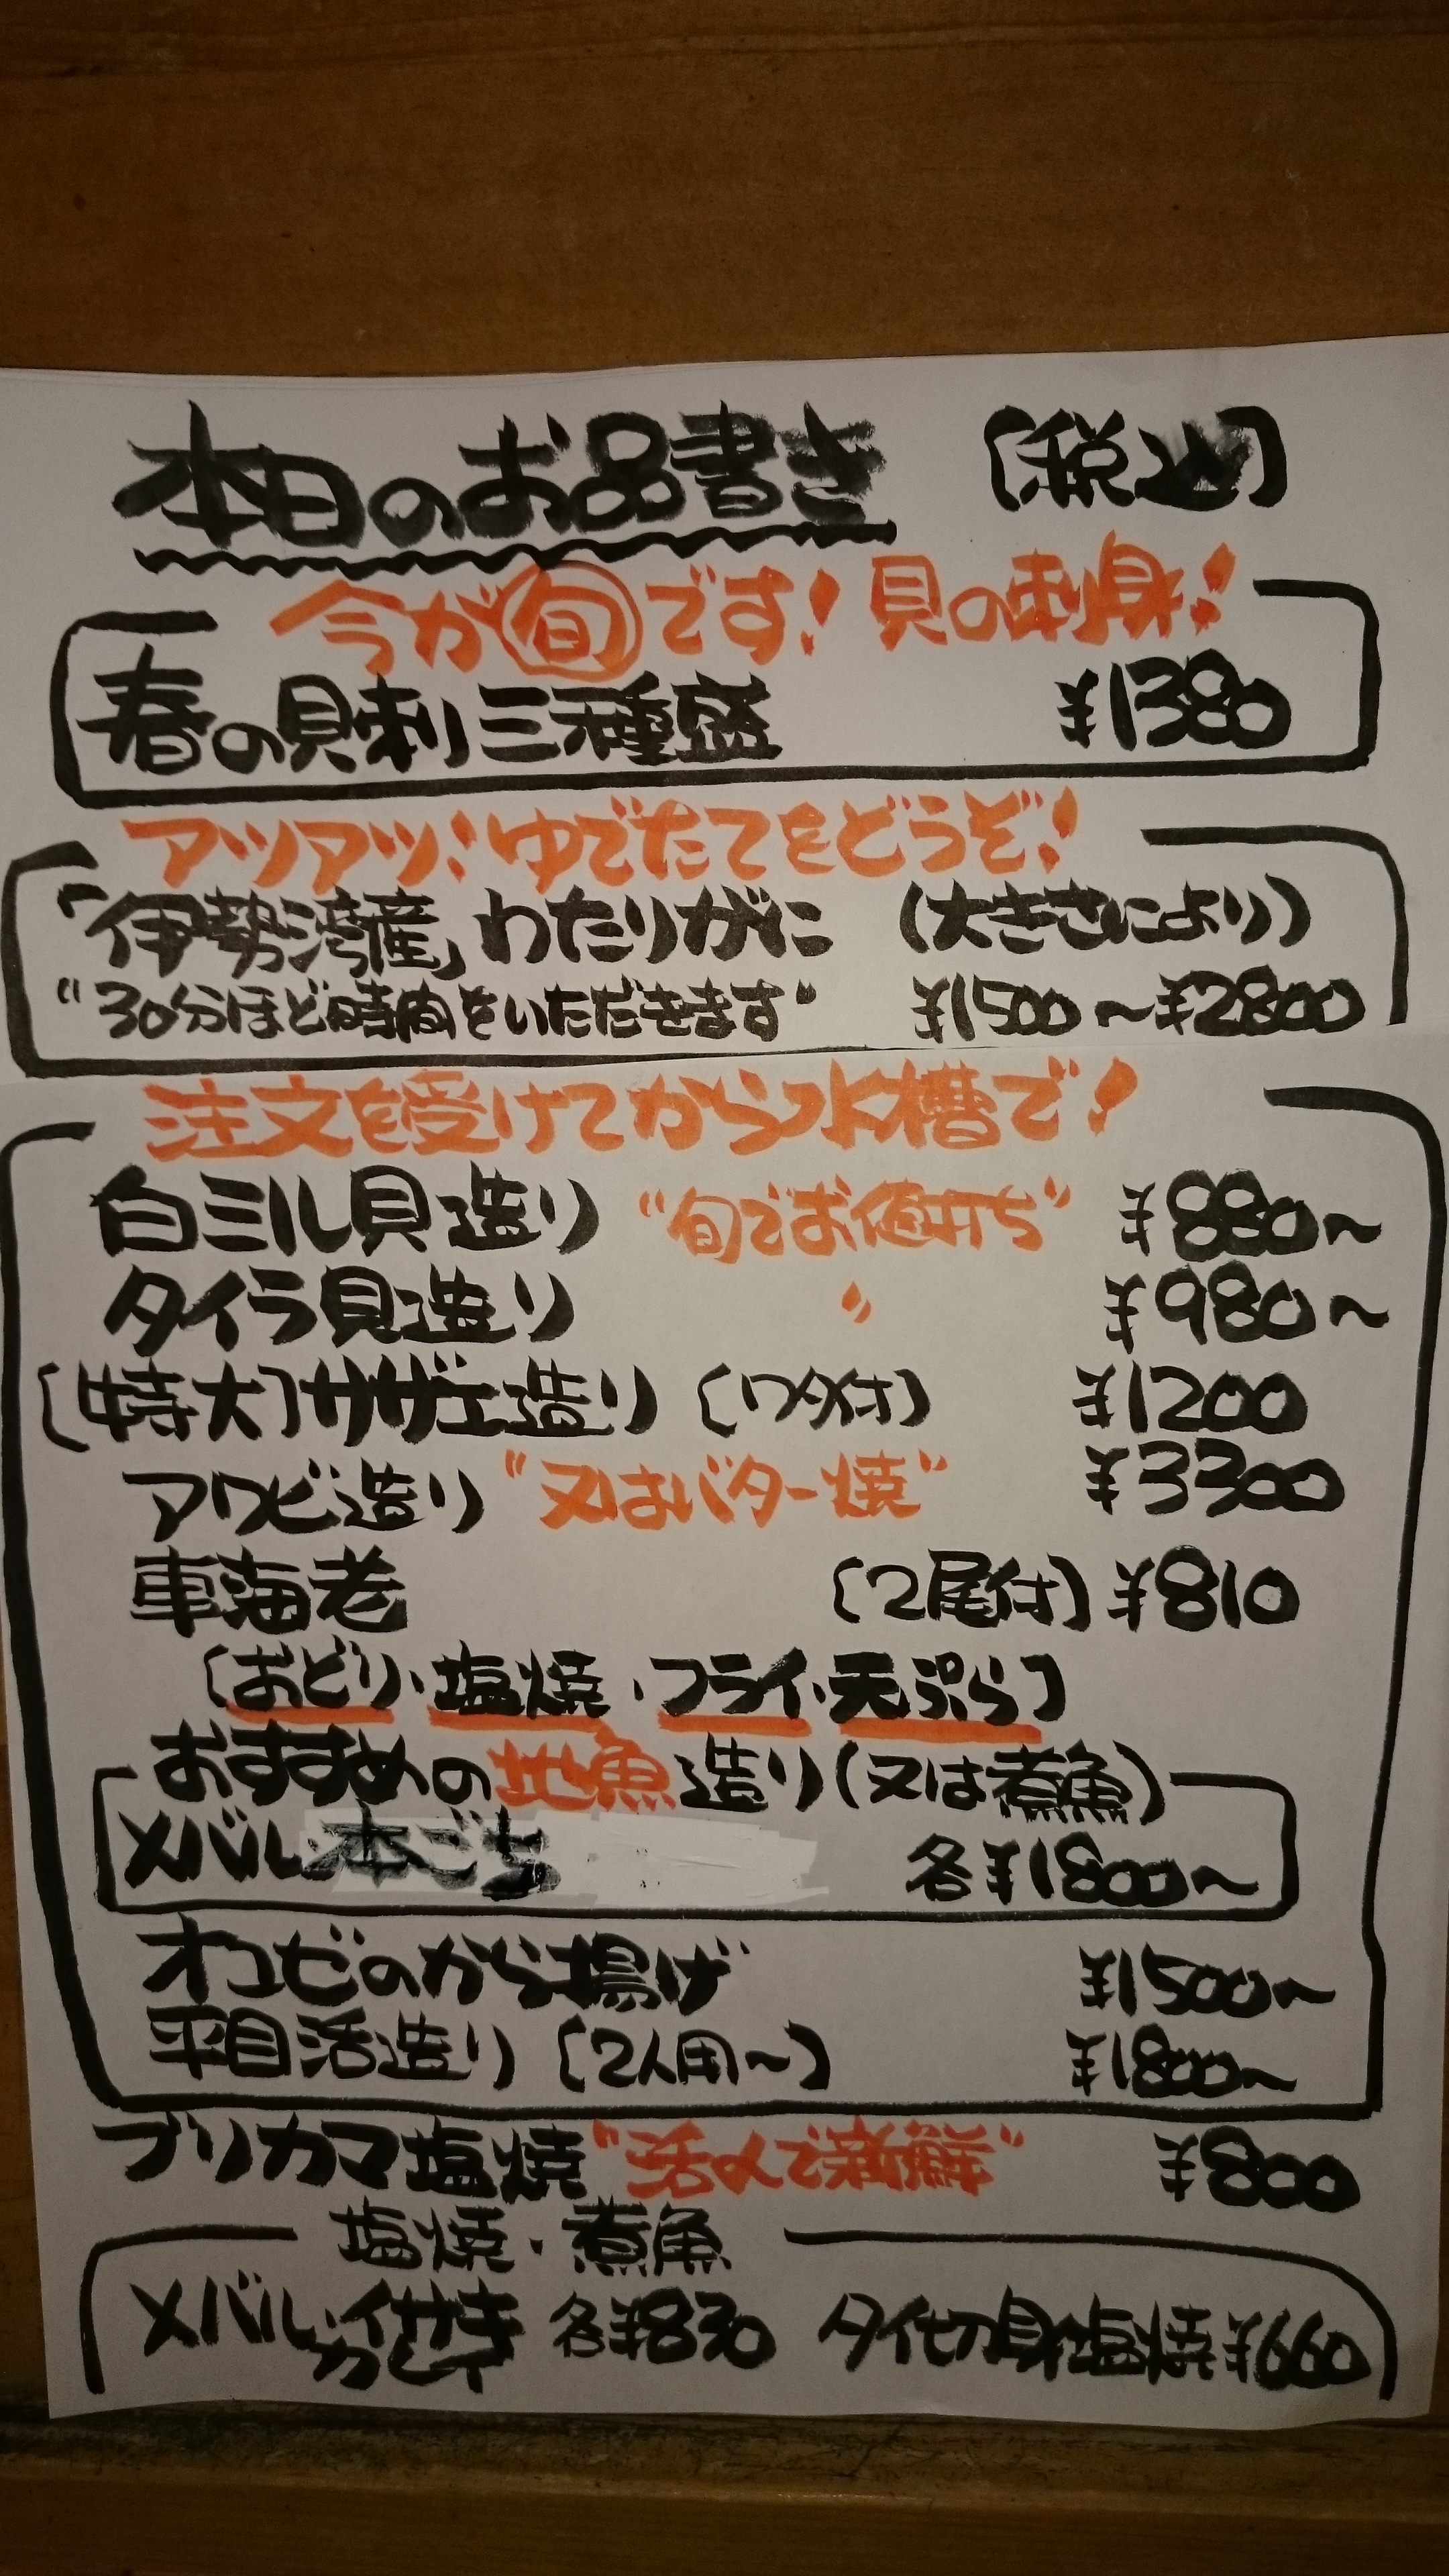 本日のお品書き 〔税込〕
今が旬です!貝の刺身!
春の貝刺三種盛 ¥1380
アツアツ!ゆでたてをどうぞ!
「伊勢湾産」わたりがに (大きさにより)
"30分ほど時間をいただきます" ¥1500〜¥2800
注文を受けてから水槽で!
白ミル貝造り "旬でお値打ち" ¥880〜
タイラ貝造り 〃 ¥980〜
〔特大〕サザエ造り 〔ワタ付〕 ¥1200
アワビ造り "又はバター焼" ¥3300
車海老 〔2尾付〕 ¥810
〔おどり・塩焼・フライ・天ぷら〕
おすすめの地魚造り(又は煮魚)
メバル・本ごち 各¥1800〜
オコゼのから揚げ ¥1500〜
平目活造り 〔2人用〜〕 ¥1800〜
ブリカマ塩焼 "活〆で新鮮" ¥800
塩焼・煮魚
メバル・イサキ 各¥830 タイ切身塩焼¥660
カレイ